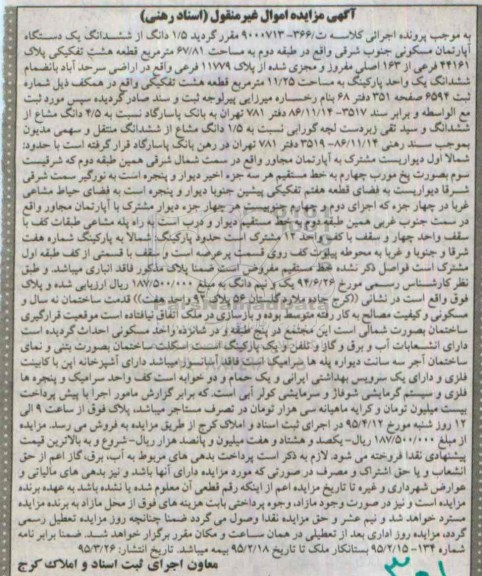 آگهی مزایده اموال غیرمنقول (اسناد رهنی)
به موجب پرونده اجرائی کلاسه ث/۳۶۶-۹۰۰۰۷۱۳ مقرر گردید ۱/۵ دانگ از ششدانگ یک دستگاه
آپارتمان مسکونی جنوب شرقی واقع در طبقه دوم به مساحت ۶۷/۸۱ مترمربع قطعه هشت تفکیکی پلاک
۴۴۱۶۱ فرعی از ۱۶۳ اصلی مفروز و مجزی شده از پلاک ۱۱۷۷۹ فرعی واقع در اراضی سرحد آباد بانضمام
ششدانگ یک واحد پارکینگ به مساحت ۱۱/۲۵ مترمربع قطعه هشت تفکیکی واقع در همکف ذیل شماره
ثبت ۶۵۹۴ صفحه ۳۵۱ دفتر ۶۸ بنام رخساره میرزایی پیرلوجه ثبت و سند صادر گردیده سپس مورد ثبت
مع الواسطه و برابر سند ۳۵۱۷-۸۶/۱۱/۱۴ دفتر ۷۸۱ به بانک پاسارگاد نسبت به ۴/۵ دانگ مشاع از
ششدانگ و سید تقی زبردست لچه گورابی نسبت به ۱/۵ دانگ مشاع از ششدانگ منتقل و سهمی مدیون
بموجب سند رهنی ۸۶/۱۱/۱۴-۳۵۱۹ دفتر ۷۸۱ تهران در رهن بانک پاسارگاد قرار گرفته است با حدود:
شمالا اول دیواریست مشترک به آپارتمان مجاور واقع در سمت شمال شرقی همین طبقه دوم که شرقیست
سوم بصورت پخ مورب چهارم به خط مستقیم هر سه جزء اخیر دیوار و پنجره است به نورگیر سمت شرقی
شرقا دیواریست به فضای قطعه هفتم تفکیکی پیشین جنوبا دیوار و پنجره است به فضای حیاط مشاعی
غربا در چهار جزء که اجزای دوم و چهارم جنوبیست هر چهار جزء دیوار مشترک با آپارتمان مجاور واقع
در سمت جنوب غربی همین طبقه مستقیم دیوار و درب است به راه پله مشاعی طبقات کف با
سقف واحد چهار و سقف با کف واحد ۱۲ مشترک است حدود پارکینگ: شمالا به پارکینگ شماره هفت
شرقا و جنوبا و غربا به محوطه پیلوت کف روی قسمت پرعرصه است و سقف با قسمتی از کف طبقه اول
مشترک است فواصل ذکر نشده خط مستقیم مفروض است ضمنا پلاک مذکور فاقد انباری میباشد. و طبق
نظر کارشناس رسمی مورخ ۹۴/۶/۲۶ یک و نیم دانگ به مبلغ ۱۸۷/۵۰۰/۰۰۰ ریال ارزیابی شده و پلاک
فوق واقع است در نشانی ((کرج جاده ملارد گلستان ۵۶ پلاک ۹۱ واحد هفت)) قدمت ساختمان نه سال و
مسکونی و کیفیت مصالح به کار رفته متوسط بوده و بازسازی در ملک اتفاق نیافتاده است موقعیت قرارگیری
ساختمان بصورت شمالی است این مجتمع در پنج طبقه و در شانزده واحد مسکونی احداث گردیده است
دارای انشعابات آب و برق و گاز و تلفن و یک پارکینگ است اسکلت ساختمان بصورت بتنی و نمای
ساختمان آجر سه سانت دیواره پله ها سرامیک است فاقد آسانسور میباشد دارای آشپزخانه اپن با کابینت
فلزی و دارای یک سرویس بهداشتی ایرانی و یک حمام و دو خوابه است کف واحد سرامیک و پنجره ها
فلزی و سیستم گرمایشی شوفاژ و سرمایشی کولر آبی است. که برابر گزارش مامور اجرا با پیش پرداخت
بیست میلیون تومان و کرایه ماهیانه سی هزار تومان در تصرف مستاجر میباشد، پلاک فوق از ساعت ۹ الی
۱۲ روز شنبه مورخ ۹۵/۴/۱۲ در اجرای ثبت اسناد و املاک کرج از طریق مزایده به فروش می رسد. مزایده
از مبلغ ۱۸۷/۵۰۰/۰۰۰ ریال- یکصد و هشتاد و هفت میلیون و پانصد هزار ریال- شروع و به بالاترین قیمت
پیشنهادی نقدا فروخته می شود. لازم به ذکر است پرداخت بدهی های مربوط به آب، برق، گاز اعم از حق
انشعاب و یا حق اشتراک و مصرف در صورتی که مورد مزایده دارای آنها باشد و نیز بدهی های مالیاتی و
عوارض شهرداری و غیره تا تاریخ مزایده اعم از اینکه رقم قطعی آن معلوم شده یا نشده باشد به عهده برنده
مزایده است و نیز در صورت وجود مازاد، وجوه پرداختی بابت هزینه های فوق از محل مازاد به برنده مزایده
مسترد خواهد شد و نیم عشر و حق مزایده نقدا وصول می گردد ضمنا چنانچه روز مزایده تعطیل رسمی
گردد، مزایده روز اداری بعد از تعطیلی در همان ساعت و مکان مقرر برگزار خواهد شد. ضمنا برابر نامه
شماره ۱۳۴-۹۵/۲/۱۵ بستانکار ملک تا تاریخ ۹۵/۲/۱۸ بیمه میباشد. تاریخ انتشار: ۹۵/۳/۲۶
معاون اجرای ثبت اسناد و املاک کرج